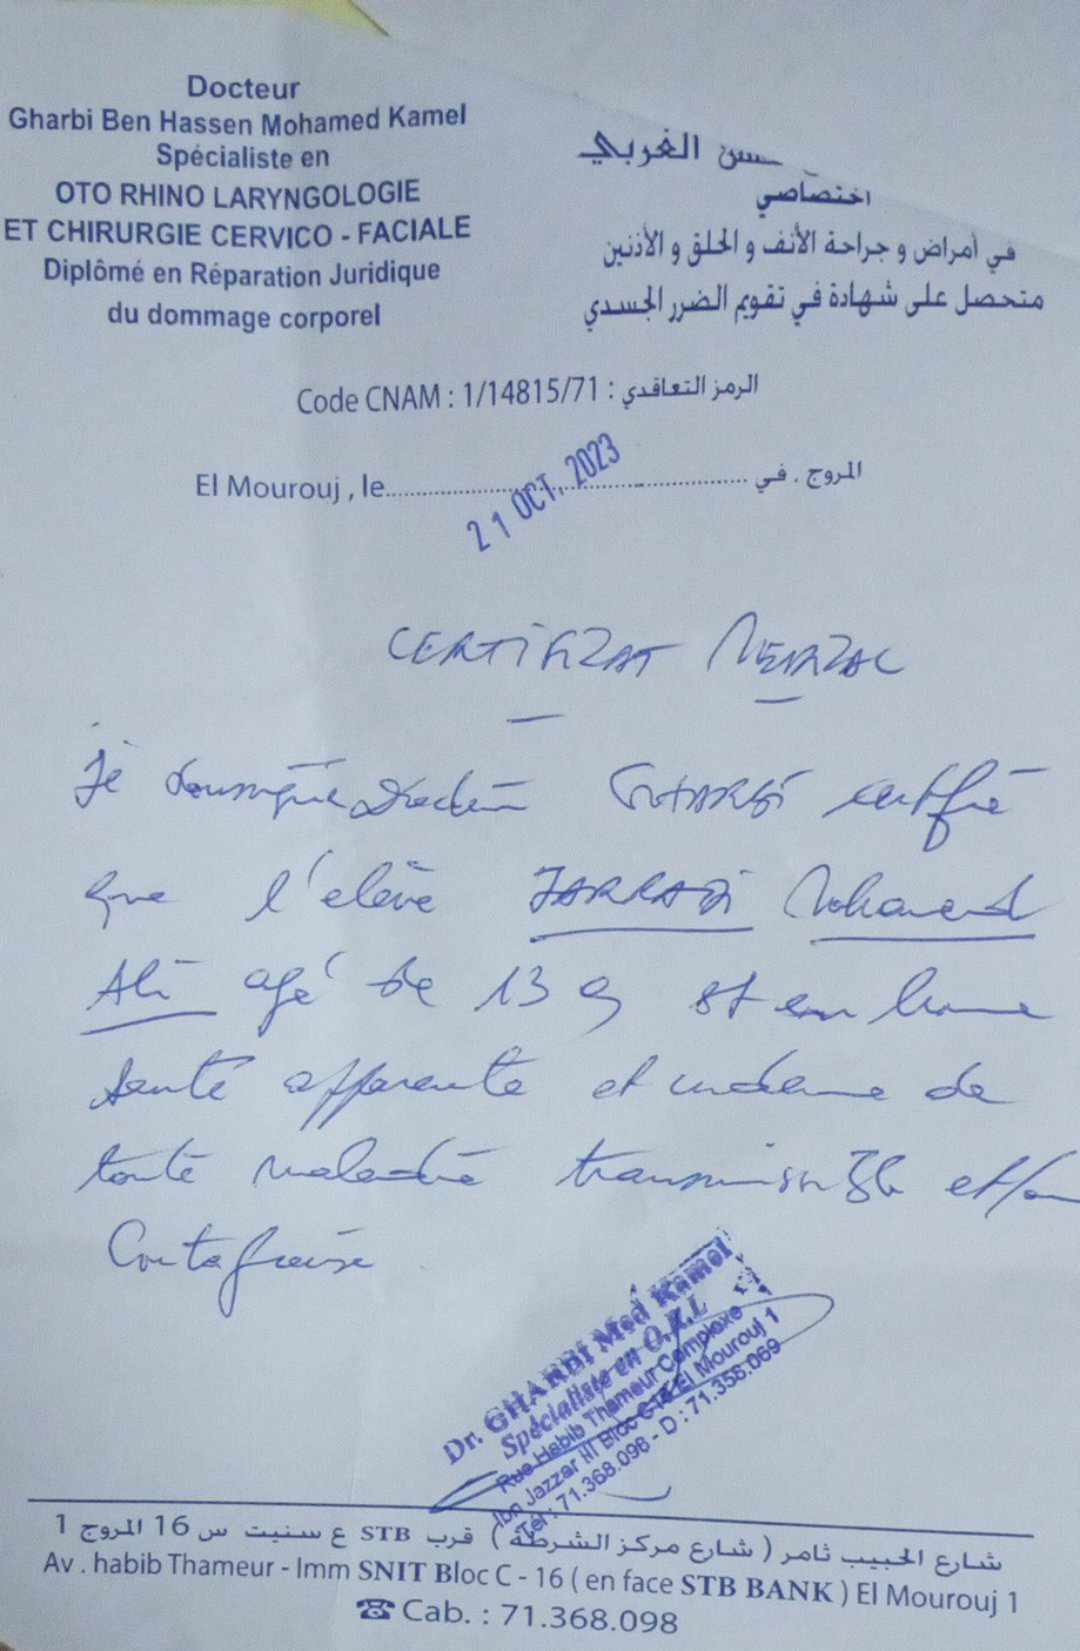 Docteur
Gharbi Ben Hassen Mohamed Kamel
Spécialiste en
OTO RHINO LARYNGOLOGIE
ET CHIRURGIE CERVICO - FACIALE
Diplômé en Réparation Juridique
du dommage corporel
الغربي
اختصاصي
في أمراض و جراحة الأنف و الحلق و الأذنين
متحصل على شهادة في تقويم الضرر الجسدي
Code CNAM : 1/14815/71 : الرمز التعاقدي
El Mourouj , le.......... المروج . في
21 OCT. 2023
CERTIFICAT MEDICAL
Je soussigné Docteur GHARBI certifie
que l'elève JARRADI Mohamed
Ali agé de 13 a est en bonne
santé apparente et indemne de
toute maladie transmissible et/ou
Contagieuse
Dr. GHARBI Med Kamel
Spécialiste en O.R.L
Rue Habib Thameur Complexe
Ibn Jazzar III Bloc El Mourouj 1
Tél : 71.368.098 - D : 71.358.069
شارع الحبيب ثامر ( شارع مركز الشرطة ) قرب STB ع سنيت س 16 المروج 1
Av . habib Thameur - Imm SNIT Bloc C - 16 ( en face STB BANK ) El Mourouj 1
☎ Cab. : 71.368.098